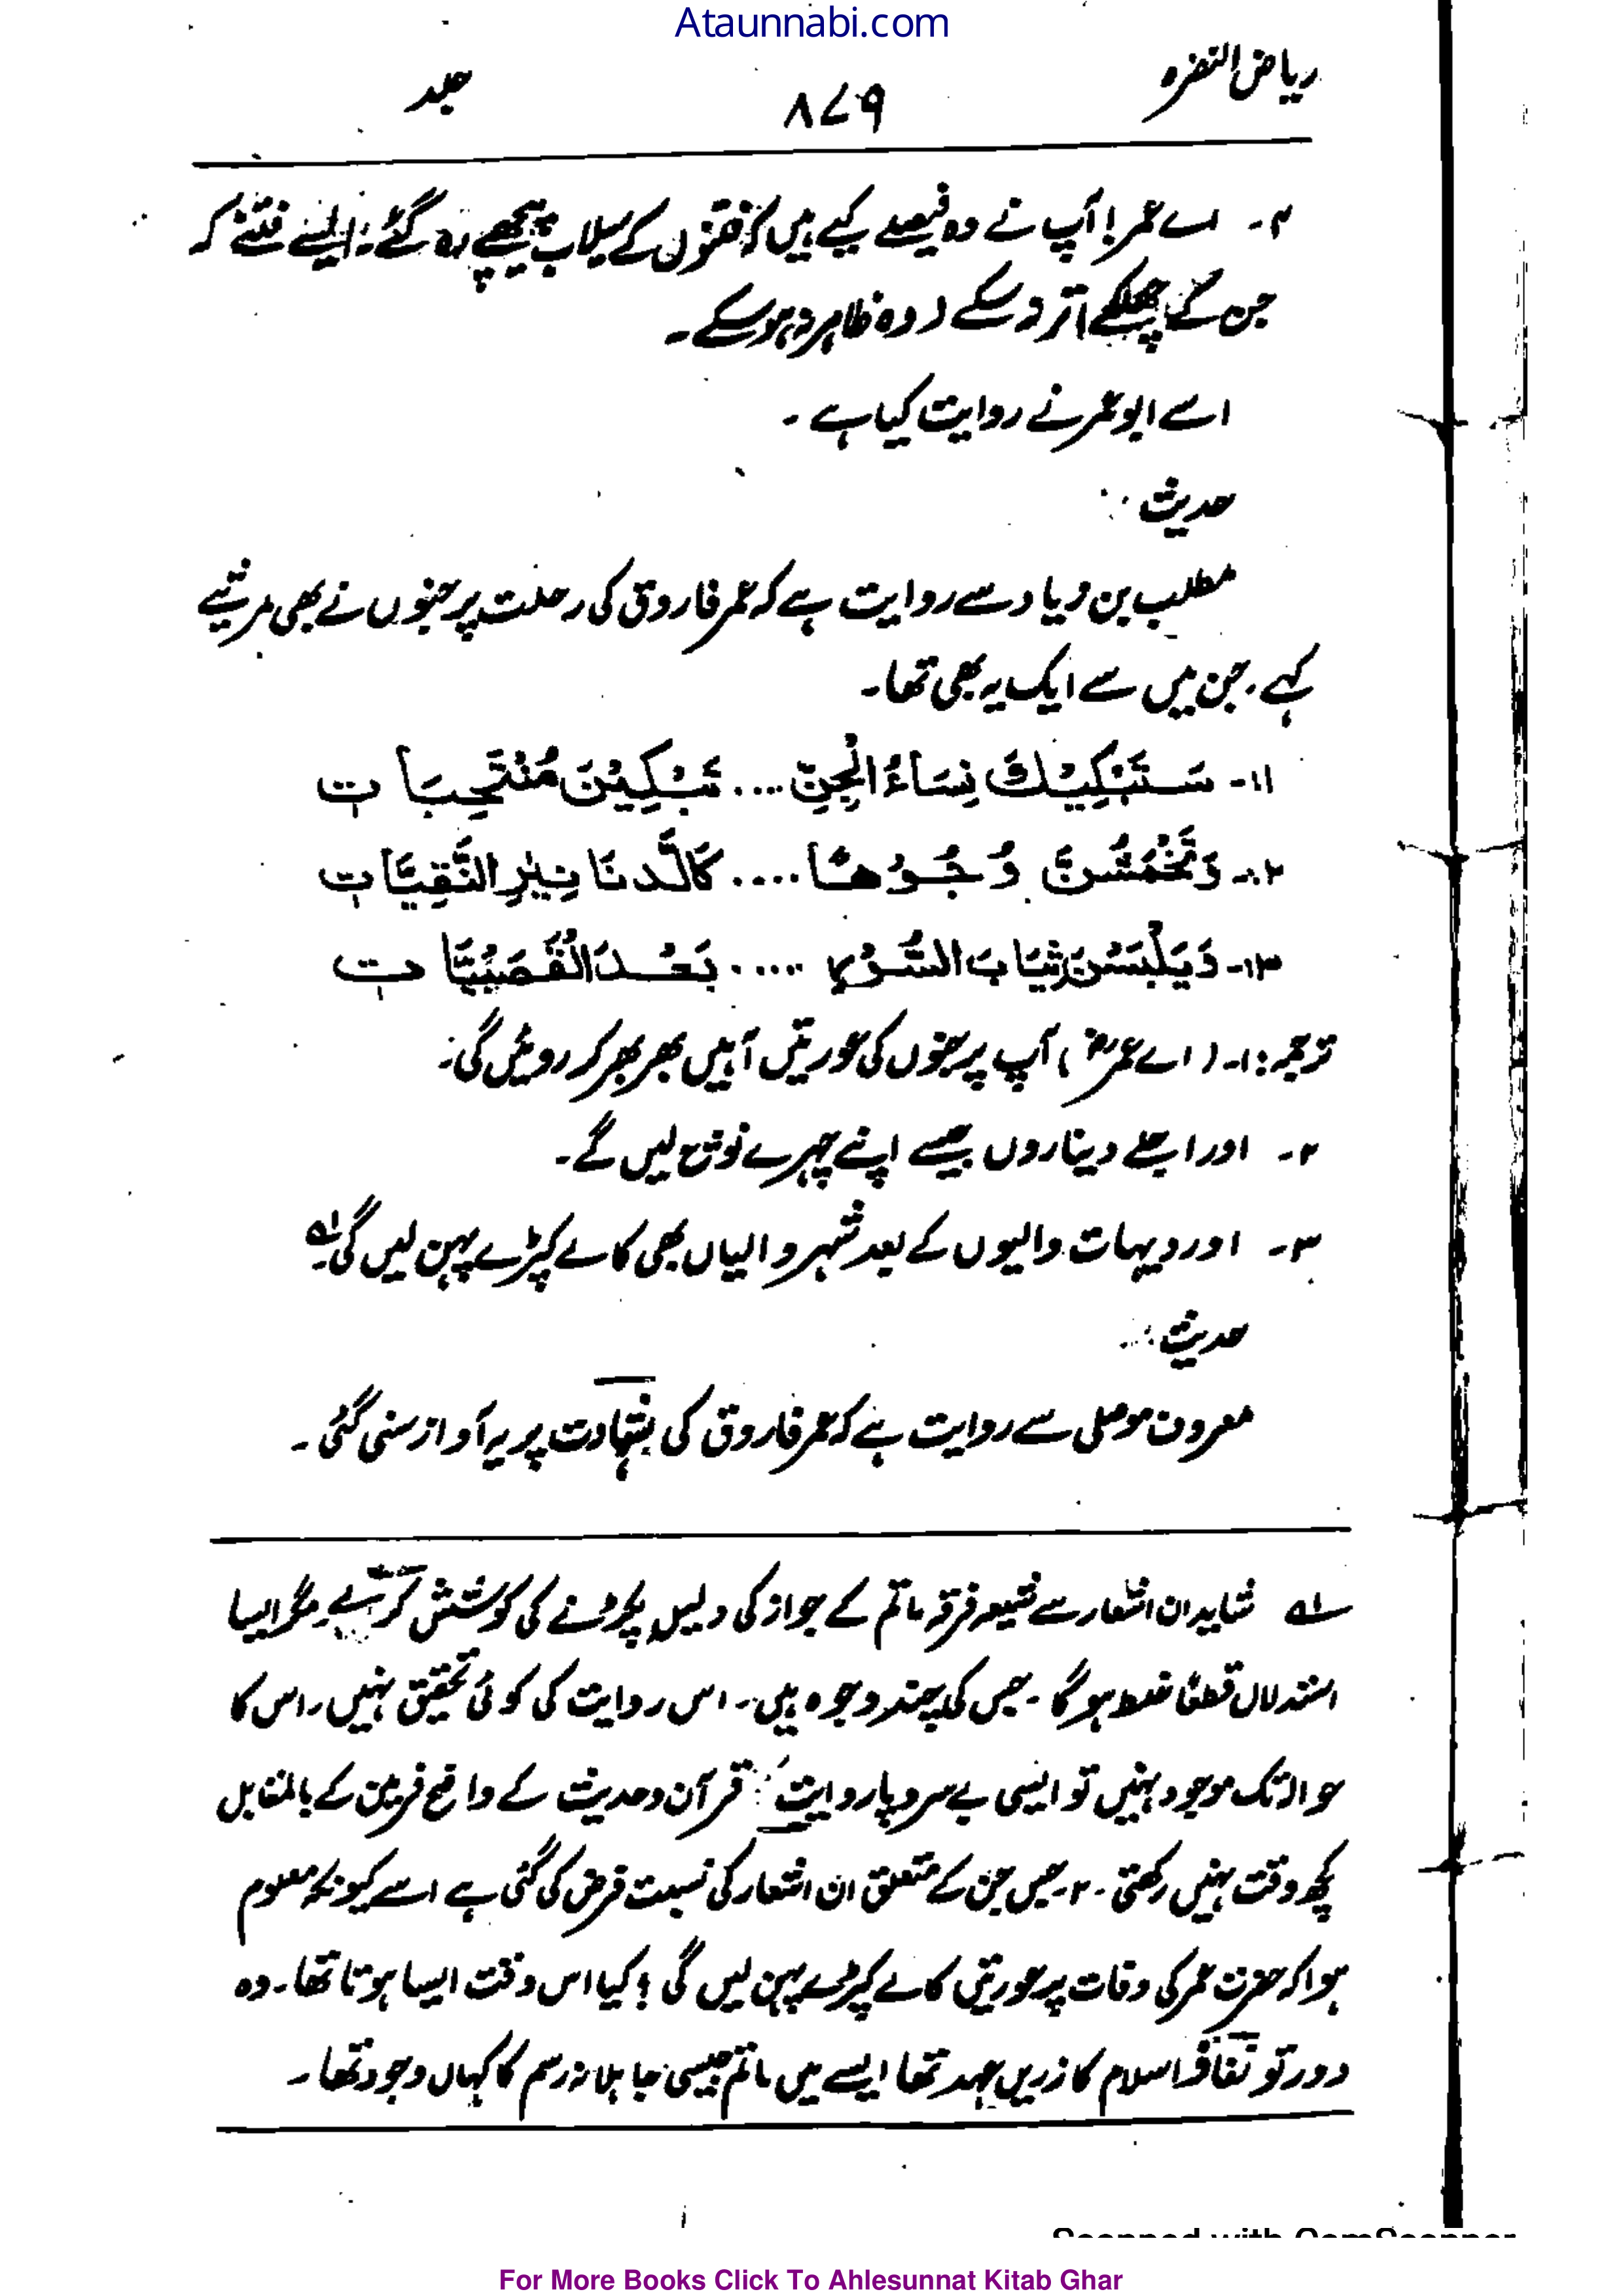 Ataunnabi.com
ریاض النضرہ
۸۷۹
جلد
۴۔ اے عمر! آپ نے وہ فیصلے کیے ہیں کہ فتنوں کے سیلاب پیچھے رہ گئے، ایسے فتنے کہ
جن کے چھلکے اتر نہ سکے (وہ ظاہر نہ ہو سکے۔
اسے ابو عمر نے روایت کیا ہے۔
حدیث:
مطلب بن زیاد سے روایت ہے کہ عمر فاروق کی رحلت پر جنوں نے بھی مرثیے
کہے، جن میں سے ایک یہ بھی تھا۔
۱۔ سَتَبْكِيْكَ نِسَاءُ الْجِنِّ .... تَبْكِيْنَ مُنْتَحِبَاتٍ
۲۔ وَتَخْمَشْنَ وُجُوْهًا .... كَالدَّنَانِيْرِ النَّقِيَّاتِ
۳۔ وَيَلْبَسْنَ ثِيَابَ السُّوْدِ ..... بَعْدَ الْقَصَبِيَّاتِ
ترجمہ: ۱۔ (اے عمرؓ) آپ پر جنوں کی عورتیں آہیں بھر بھر کر روئیں گی۔
۲۔ اور اجلے دیناروں جیسے اپنے چہرے نوچ لیں گے۔
۳۔ اور دیہات والیوں کے بعد شہر والیاں بھی کالے کپڑے پہن لیں گی۔ لہ
حدیث:
معروف موصلی سے روایت ہے کہ عمر فاروق کی شہادت پر یہ آواز سنی گئی۔
لہ شاید ان اشعار سے شیعہ فرقہ ماتم کے جواز کی دلیل پکڑنے کی کوشش کرے، مگر ایسا
استدلال قطعاً غلط ہو گا۔ جس کی چند وجوہ ہیں۔ اس روایت کی کوئی تحقیق نہیں، اس کا
حوالہ تک موجود نہیں تو ایسی بے سروپا روایت قرآن و حدیث کے واضح فرمین کے بالمقابل
کچھ وقت نہیں رکھتی۔ ۲۔ جس جن کے متعلق ان اشعار کی نسبت فرض کی گئی ہے اسے کیونکر معلوم
ہوا کہ حضرت عمر کی وفات پر عورتیں کالے کپڑے پہن لیں گی؟ کیا اس وقت ایسا ہوتا تھا۔ وہ
دور تو نفاذ اسلام کا زریں عہد تھا ایسے میں ماتم جیسی جاہلانہ رسم کا کہاں وجود تھا۔
Scanned with CamScanner
For More Books Click To Ahlesunnat Kitab Ghar